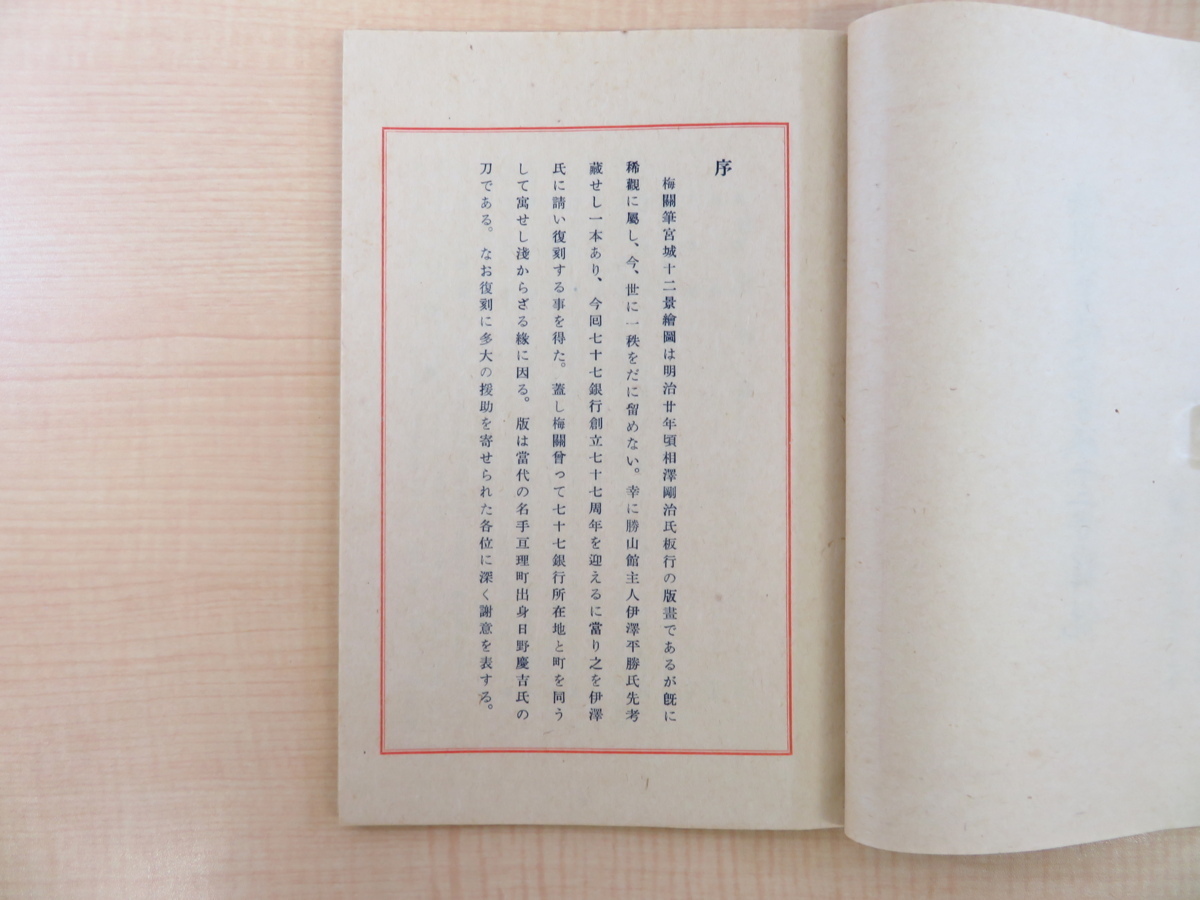 序
梅關筆宮城十二景繪圖は明治廿年頃相澤剛治氏板行の版畫であるが既に
稀觀に屬し、今、世に一秩をだに留めない。幸に勝山館主人伊澤平勝氏先考
藏せし一本あり、今回七十七銀行創立七十七周年を迎えるに當り之を伊澤
氏に請い復刻する事を得た。蓋し梅關曾って七十七銀行所在地と町を同う
して寓せし淺からざる緣に因る。版は當代の名手亘理町出身日野慶吉氏の
刀である。なお復刻に多大の援助を寄せられた各位に深く謝意を表する。